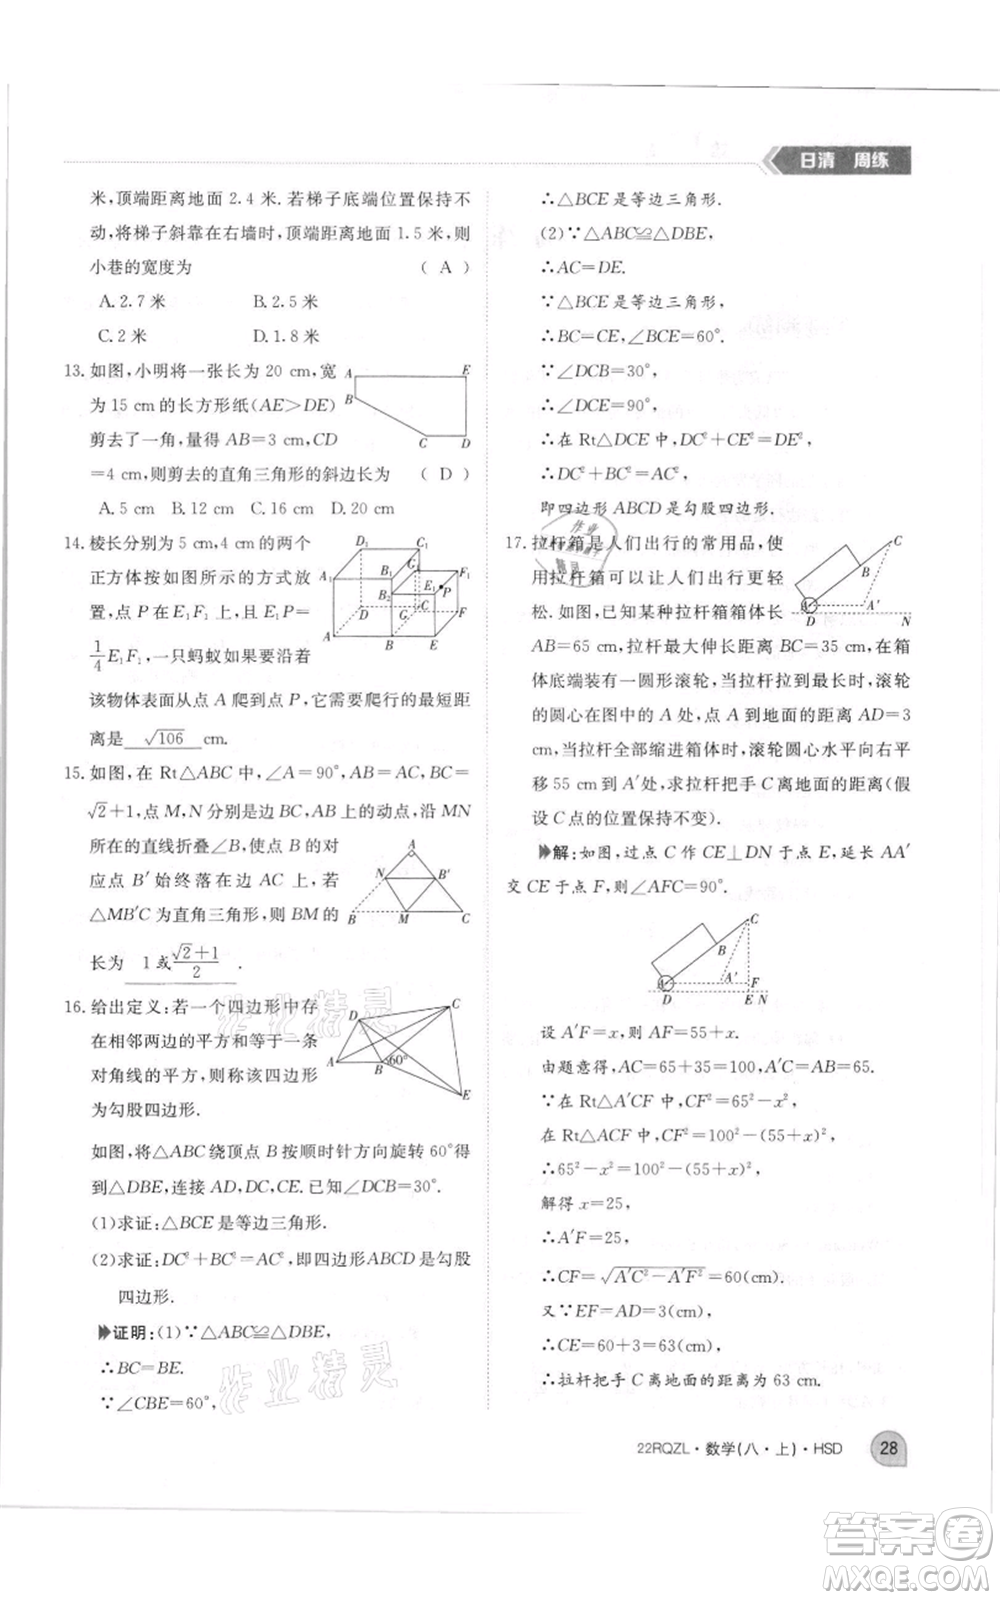 日清 周练
米,顶端距离地面 2.4 米.若梯子底端位置保持不
动,将梯子斜靠在右墙时,顶端距离地面 1.5 米,则
小巷的宽度为 ( A )
A. 2.7 米 B. 2.5 米
C. 2 米 D. 1.8 米
13. 如图,小明将一张长为 20 cm,宽
为 15 cm 的长方形纸(AE>DE)
剪去了一角,量得 AB=3 cm,CD
=4 cm,则剪去的直角三角形的斜边长为 ( D )
A. 5 cm B. 12 cm C. 16 cm D. 20 cm
A E B C D
14. 棱长分别为 5 cm,4 cm 的两个
正方体按如图所示的方式放
置,点 P 在 E₁F₁ 上,且 E₁P=
1/4 E₁F₁,一只蚂蚁如果要沿着
该物体表面从点 A 爬到点 P,它需要爬行的最短距
离是 √106 cm.
D₁ C₁ A₁ B₁ F₁ E₁ P B₂ D C F A B E
15. 如图,在 Rt△ABC 中,∠A=90°,AB=AC,BC=
√2+1,点 M,N 分别是边 BC,AB 上的动点,沿 MN
所在的直线折叠∠B,使点 B 的对
应点 B′始终落在边 AC 上.若
△MB′C 为直角三角形,则 BM 的
长为 1 或 (√2+1)/2 .
A N B′ B M C
16. 给出定义:若一个四边形中存
在相邻两边的平方和等于一条
对角线的平方,则称该四边形
为勾股四边形.
D C A B 60° E
如图,将△ABC 绕顶点 B 按顺时针方向旋转 60°得
到△DBE,连接 AD,DC,CE.已知∠DCB=30°.
(1)求证:△BCE 是等边三角形.
(2)求证:DC²+BC²=AC²,即四边形ABCD是勾股
四边形.
证明:(1)∵△ABC≌△DBE,
∴BC=BE.
∵∠CBE=60°,
∴△BCE 是等边三角形.
(2)∵△ABC≌△DBE,
∴AC=DE.
∵△BCE 是等边三角形,
∴BC=CE,∠BCE=60°.
∵∠DCB=30°,
∴∠DCE=90°.
∴在 Rt△DCE 中,DC²+CE²=DE²,
∴DC²+BC²=AC²,
即四边形 ABCD 是勾股四边形.
17. 拉杆箱是人们出行的常用品,使
用拉杆箱可以让人们出行更轻
松.如图,已知某种拉杆箱箱体长
AB=65 cm,拉杆最大伸长距离 BC=35 cm,在箱
体底端装有一圆形滚轮,当拉杆拉到最长时,滚轮
的圆心在图中的 A 处,点 A 到地面的距离 AD=3
cm,当拉杆全部缩进箱体时,滚轮圆心水平向右平
移 55 cm 到 A′处,求拉杆把手 C 离地面的距离(假
设 C 点的位置保持不变).
C B A A′ D N
解:如图,过点 C 作 CE⊥DN 于点 E,延长 AA′
交 CE 于点 F,则∠AFC=90°.
C B A A′ F D E N
设 A′F=x,则 AF=55+x.
由题意得,AC=65+35=100,A′C=65.
∵在 Rt△A′CF 中,CF²=65²−x²,
在 Rt△ACF 中,CF²=100²−(55+x)²,
∴65²−x²=100²−(55+x)²,
解得 x=25,
∴A′F=25,
∴CF=√(A′C²−A′F²)=60(cm).
又∵EF=AD=3(cm),
∴CE=60+3=63(cm),
∴拉杆把手 C 离地面的距离为 63 cm.
作业精灵
作业精灵
22RQZL·数学(八·上)·HSD 28
答案卷
MXQE.COM